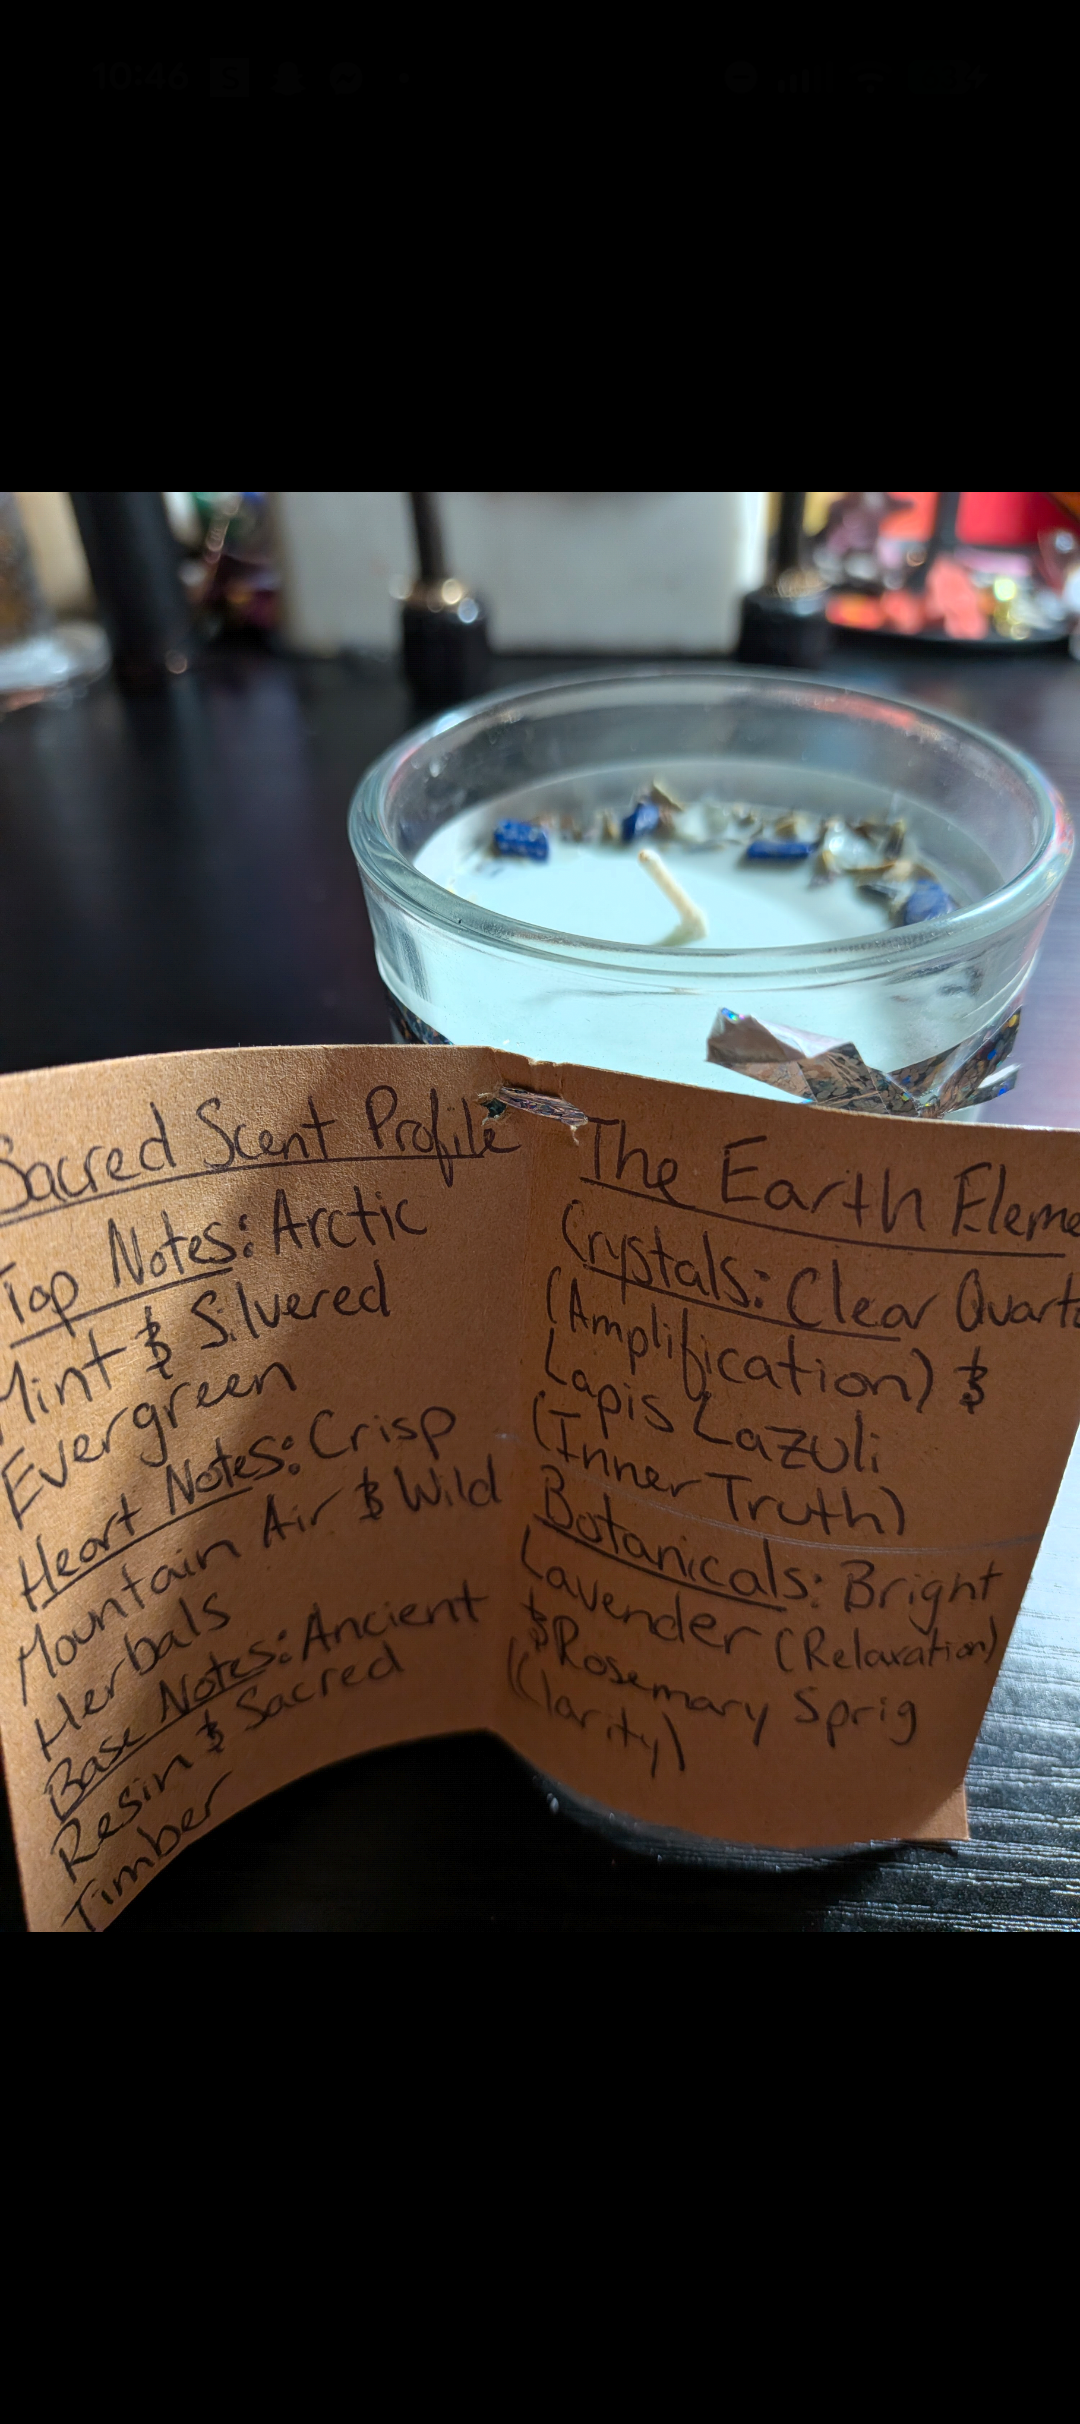 10:46
Sacred Scent Profile
Top Notes: Arctic
Mint & Silvered
Evergreen
Heart Notes: Crisp
Mountain Air & Wild
Herbals
Base Notes: Ancient
Resin & Sacred
Timber
The Earth Eleme
Crystals: Clear Quart
(Amplification) &
Lapis Lazuli
(Inner Truth)
Botanicals: Bright
Lavender (Relaxation)
& Rosemary Sprig
(Clarity)